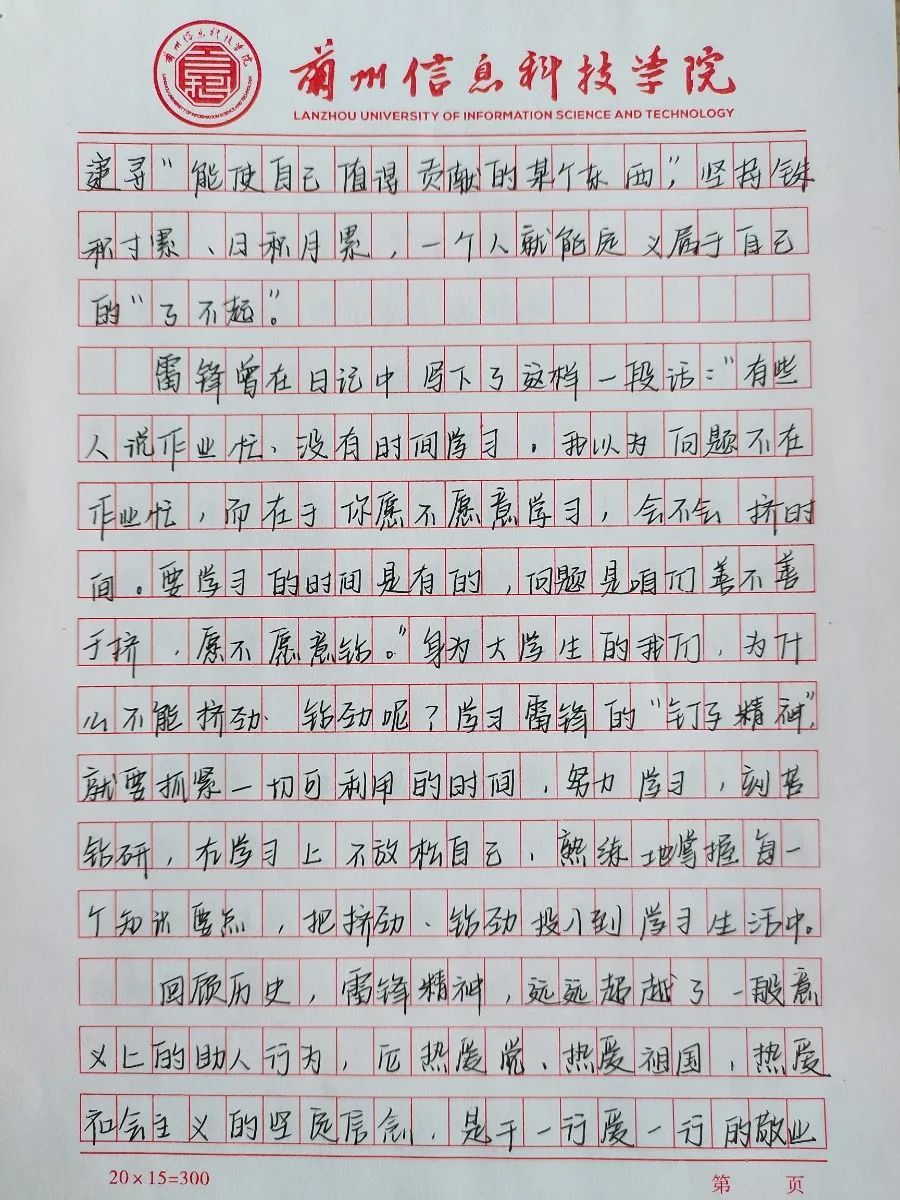 兰州信息科技学院
兰州信息科技学院
LANZHOU UNIVERSITY OF INFORMATION SCIENCE AND TECHNOLOGY
LANZHOU UNIVERSITY OF INFORMATION SCIENCE AND TECHNOLOGY
追寻“能使自己值得贡献的某个东西”，坚持铢
积寸累、日积月累，一个人就能定义属于自己
的“了不起”。
雷锋曾在日记中写下了这样一段话：“有些
人说作业忙、没有时间学习。我以为问题不在
作业忙，而在于你愿不愿意学习，会不会挤时
间。要学习的时间是有的，问题是咱们善不善
于挤，愿不愿意钻。”身为大学生的我们，为什
么不能挤劲、钻劲呢？学习雷锋的“钉子精神”，
就要抓紧一切可利用的时间，努力学习，刻苦
钻研，在学习上不放松自己，熟练地掌握每一
个知识要点，把挤劲、钻劲投入到学习生活中。
回顾历史，雷锋精神，远远超越了一般意
义上的助人行为，热爱党、热爱祖国、热爱
社会主义的坚定信念，是干一行爱一行的敬业
20×15=300
第 页